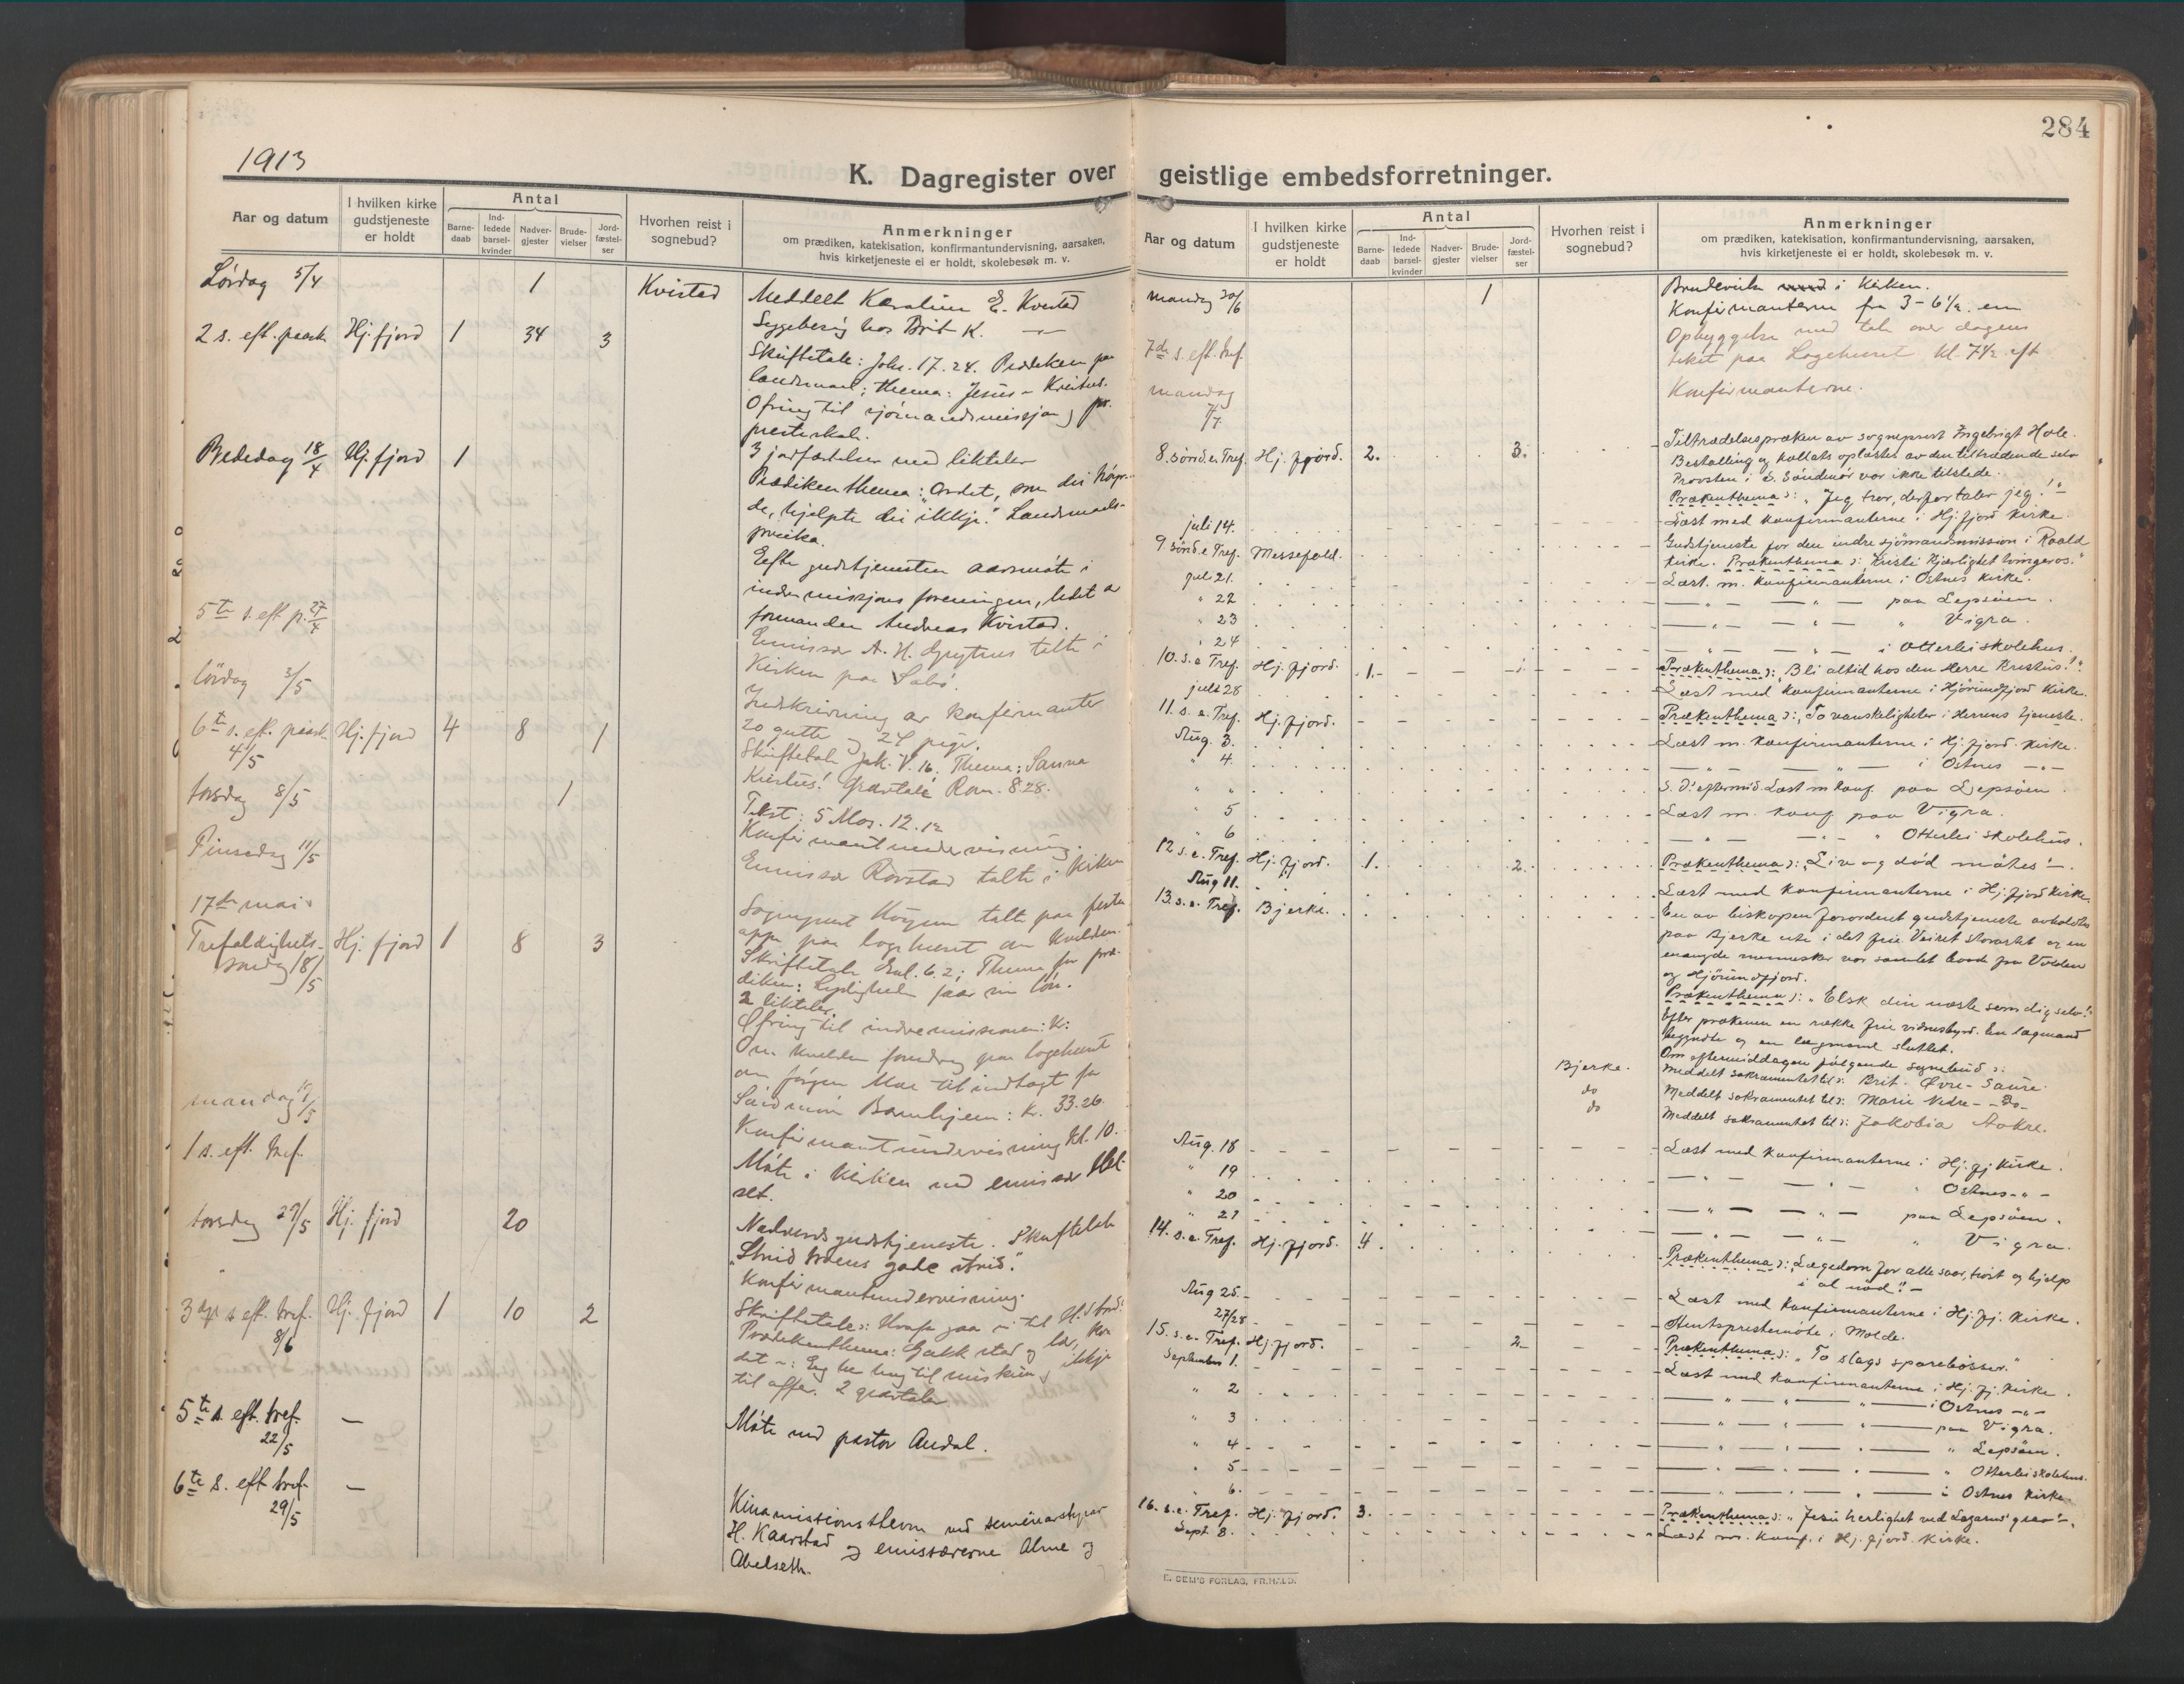 284
1913
K. Dagregister over geistlige embedsforretninger.
Aar og datum
I hvilken kirke gudstjeneste er holdt
Antal
Barnedaab
Indledede barselkvinder
Nadvergjester
Brudevielser
Jordfæstelser
Hvorhen reist i sognebud?
Anmerkninger
om prædiken, katekisation, konfirmantundervisning, aarsaken,
hvis kirketjeneste ei er holdt, skolebesøk m. v.
Lørdag 5/4 1 Kvistad Meddelt E. Kvistad
Sygebesøg hos Brit K.
2 s. eft. paask Hj. fjord 1 34 3
Skriftetale: Joh. 17.24. Prædiken paa
landsmaal; thema: Jesus – Kristus.
Ofring til sjømandsmissjon og
3 jordfæstelser med liktaler
Bededag 18/4 Hj. fjord 1
Prædiken thema: "Ordet, som dei høyr-
de, hjelpte dei ikkje." Landsmaals-
preika.
Efte gudstjenesten aarsmøte i
indremissjonsforeningen, ledet a
formanden Andreas Kvistad.
5te s. eft p. 27/4
Emissær A. H. talte i
Kirken paa Sæbø.
lørdag 3/5
Indskrivning av konfirmanter
20 gutter og 24 piger.
6te s. eft. paask 4/5 Hj. fjord 4 8 1
Skriftetale Jak. V. 16. Thema: Sanna
Kristus! Gravtale Rom. 8.28.
torsdag 8/5 1
Tekst: 5 Mos. 12.12
Konfirmantundervisning.
Pinsedag 11/5
Emissær Rovstad talte i Kirken
17de mai
Sogneprest talte paa festen
oppe paa logehuset om kvelden.
Trefoldighets-
søndag 18/5 Hj. fjord 1 8 3
Skriftetale 6.2; Thema for præ-
diken: faar sin løn.
2 liktaler.
Ofring til indremissionen: K:
Om kvelden foredrag paa logehuset
om Jørgen Moe til indtægt for
Søndmør Barnhjem: K. 33.26.
mandag 19/5
Konfirmantundervisning kl. 10.
1 s. eft. tref.
Møte i kirken ved emissær
set.
torsdag 29/5 Hj. fjord 20
Nadverdsgudstjeneste. Skriftetale
"Strid troens gode strid."
Konfirmantundervisning.
3dje s eft. tref. 8/6 Hj. fjord 1 10 2
Skriftetale: gaa til
Prædikenthema: Gakk stad og lær, kva
det –: Eg he hug til miskunn og ikkje
til offer. 2 gravtaler
5te s. eft. tref. 22/5 —
Møte ved pastor Andal.
6te s. eft tref. 29/5 —
Kinamissionsstevne ved seminarstyrer
H. Kaarstad og emissærerne Alme og
Abelseth.
Aar og datum
I hvilken kirke gudstjeneste er holdt
Antal
Barnedaab
Indledede barselkvinder
Nadvergjester
Brudevielser
Jordfæstelser
Hvorhen reist i sognebud?
Anmerkninger
om prædiken, katekisation, konfirmantundervisning, aarsaken,
hvis kirketjeneste ei er holdt, skolebesøk m. v.
mandag 30/6 1 Brudevielse i Kirken.
Konfirmanterne fra 3–6½ em
Opbyggelse med tale over dagens
tekst paa Logehuset kl. 7½ eft
7de s. eft. tref.
mandag 7/7 Konfirmanterne.
8. sønd. e. Tref. Hj. fjord. 2. 3.
Tiltrædelsespræken av sogneprest Ingebrigt Hole.
Bestalling og kollats oplæstes av den tiltrædende selv
Provsten i S. Søndmør var ikke tilstede.
Prækenthema: "Jeg tror, derfor taler jeg!"
juli 14. Læst med konfirmanterne i Hj. fjord Kirke.
9. sønd. e Tref. Messefald.
Gudstjeneste for den indre sjømandsmission i Roald
kirke. Prækenthema: "Kristi Kjærlighet tvinger os."
jul 21. Læst. m. konfirmanterne i Ostnes kirke.
" 22 — " — — " — paa Lepsøen.
" 23 — " — — " — " Vigra.
" 24 — " — — " — i Otterlei skolehus.
10. s. e Tref. Hj. fjord. 1. Prækenthema: "Bli altid hos den Herre Kristus!"
juli 28 Læst med konfirmanterne i Hjørundfjord Kirke.
11. s. e. Tref. Hj. fjord. Prækenthema: "To vanskeligheter i Herrens tjeneste.
Aug. 3. Læst m. konfirmanterne i Hj. fjord. kirke.
" 4. — " — — " — i Ostnes — " —
" " S. D. eftermid. Læst m konf paa Lepsøen.
" 5 Læst m. konf. paa Vigra.
" 6 — " — — " — " Otterlei skolehus.
12 s. e. Tref. Hj. fjord. 1. 2. Prækenthema: "Liv og død møtes!"
Aug 11. Læst med konfirmanterne i Hj. fjord Kirke.
13. s. e. Tref. Bjerke.
En av biskopen forordnet gudstjeneste avholdtes
paa Bjerke ute i det frie Veiret storartet og en
mængde mennesker var samlet baade fra Volden
og Hjørundfjord.
Prækenthema: "Elsk din næste som dig selv!"
Efter prækenen en række frie vidnesbyrd. En lægmand
begyndte og en lægmand sluttet.
Om eftermiddagen følgende sognebud:
Bjerke. Meddelt sakramentet til: Brit. Øvre-Saure.
do Meddelt sakramentet til: Marie Nedre- – do –
do Meddelt sakramentet til: Jakobia Aakre.
Aug. 18 Læst med konfirmanterne i Hj. fj Kirke.
" 19 — " — — " — " Ostnes – " –
" 20 — " — — " — paa Lepsøen.
" 21 — " — — " — " Vigra.
14. s. e. Tref. Hj. fjord. 4.
Prækenthema: "Lægedom for alle saar, trøst og hjelp
i al nød!" –
Aug 25. Læst med konfirmanterne i Hj. fj. kirke.
27/28 Amtsprestemøte i Molde.
15. s. e. Tref. Hj. fjord. 2 Prækenthema: "To slags sparebøsser."
September 1. Læst med konfirmanterne i Hj. fj. kirke.
" 2 — " — " — " — i Ostnes – " –
" 3 — " — " — " — paa Vigra.
" 4 — " — " — " — " Lepsøen.
" 5 — " — " — " — " Otterlei skolehus.
6. — " — " — " — i Ostnes kirke.
16. s. e. Tref. Hj. fjord. 3. Prækenthema: "Jesu herlighet ved Lazarus' grav!"
Sept. 8. Læst m. konf. i Hj. fjord. kirke.
E. SEM'S FORLAG, FR.HALD.